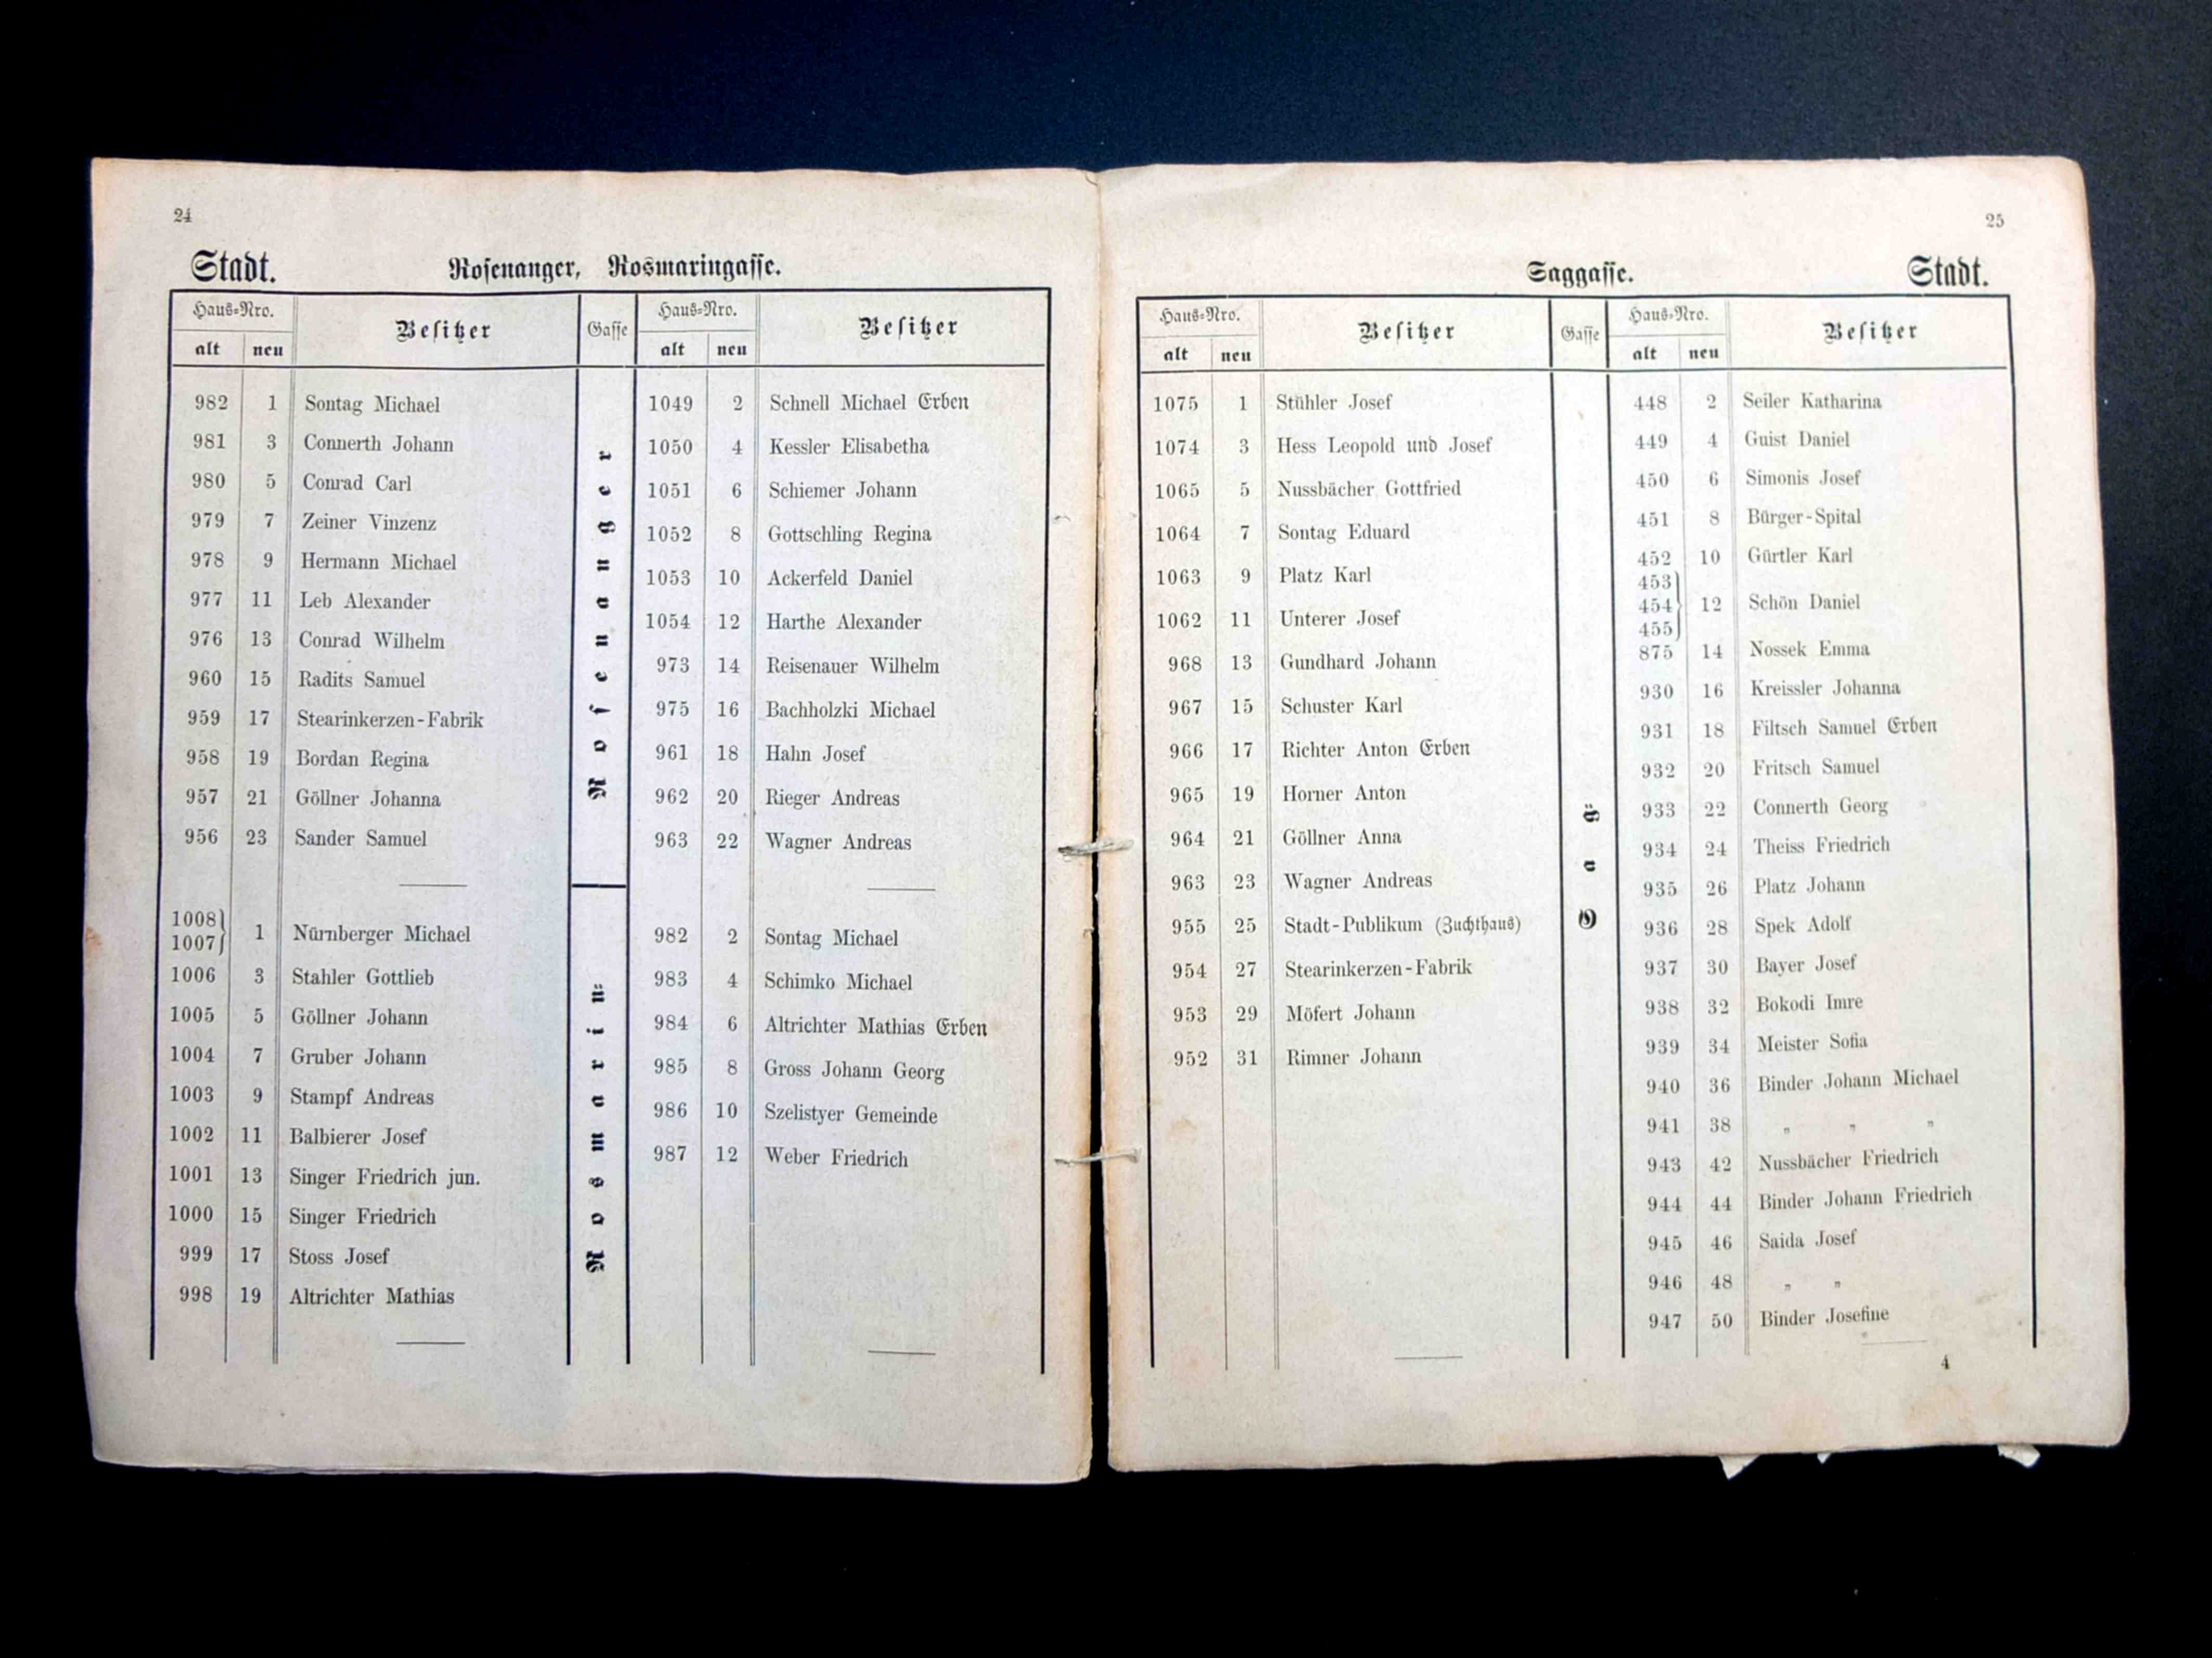 24
Stadt. Rosenanger, Rosmaringasse.
Haus-Nro. Besitzer Gasse Haus-Nro. Besitzer
alt neu alt neu
982 1 Sontag Michael 1049 2 Schnell Michael Erben
981 3 Connerth Johann 1050 4 Kessler Elisabetha
980 5 Conrad Carl 1051 6 Schiemer Johann
979 7 Zeiner Vinzenz 1052 8 Gottschling Regina
978 9 Hermann Michael 1053 10 Ackerfeld Daniel
977 11 Leb Alexander 1054 12 Harthe Alexander
976 13 Conrad Wilhelm 973 14 Reisenauer Wilhelm
960 15 Radits Samuel 975 16 Bachholzki Michael
959 17 Stearinkerzen-Fabrik 961 18 Hahn Josef
958 19 Bordan Regina 962 20 Rieger Andreas
957 21 Göllner Johanna 963 22 Wagner Andreas
956 23 Sander Samuel
Rosenanger
1008 1007 } 1 Nürnberger Michael 982 2 Sontag Michael
1006 3 Stahler Gottlieb 983 4 Schimko Michael
1005 5 Göllner Johann 984 6 Altrichter Mathias Erben
1004 7 Gruber Johann 985 8 Gross Johann Georg
1003 9 Stampf Andreas 986 10 Szelistyer Gemeinde
1002 11 Balbierer Josef 987 12 Weber Friedrich
1001 13 Singer Friedrich jun.
1000 15 Singer Friedrich
999 17 Stoss Josef
998 19 Altrichter Mathias
Rosmarin-
25
Saggasse. Stadt.
Haus-Nro. Besitzer Gasse Haus-Nro. Besitzer
alt neu alt neu
1075 1 Stühler Josef 448 2 Seiler Katharina
1074 3 Hess Leopold und Josef 449 4 Guist Daniel
1065 5 Nussbächer Gottfried 450 6 Simonis Josef
1064 7 Sontag Eduard 451 8 Bürger-Spital
1063 9 Platz Karl 452 10 Gürtler Karl
1062 11 Unterer Josef 453 454 455 } 12 Schön Daniel
968 13 Gundhard Johann 875 14 Nossek Emma
967 15 Schuster Karl 930 16 Kreissler Johanna
966 17 Richter Anton Erben 931 18 Filtsch Samuel Erben
965 19 Horner Anton 932 20 Fritsch Samuel
964 21 Göllner Anna 933 22 Connerth Georg
963 23 Wagner Andreas 934 24 Theiss Friedrich
955 25 Stadt-Publikum (Zuchthaus) 935 26 Platz Johann
954 27 Stearinkerzen-Fabrik 936 28 Spek Adolf
953 29 Möfert Johann 937 30 Bayer Josef
952 31 Rimner Johann 938 32 Bokodi Imre
939 34 Meister Sofia
940 36 Binder Johann Michael
941 38 " " "
943 42 Nussbächer Friedrich
944 44 Binder Johann Friedrich
945 46 Saida Josef
946 48 " "
947 50 Binder Josefine
Sag-
4